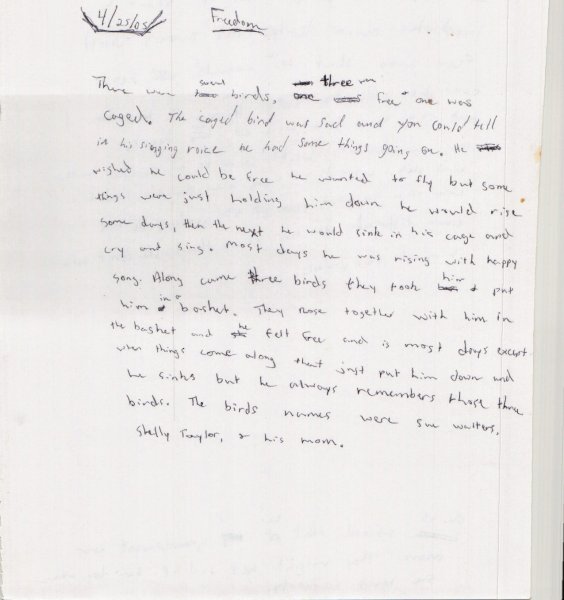 4/25/05 Freedom
There were several birds, three were
free & one was
caged. The caged bird was sad and you could tell
in his singing voice he had some things going on. He
wished he could be free he wanted to fly but some
things were just holding him down he would rise
some days, then the next he would sink in his cage and
cry and sing. most days he was rising with happy
song. Along came three birds they took him & put
him in a basket. They rose together with him in
the basket and he felt free and is most days except
when things come along that just put him down and
he sinks but he always remembers those three
birds. The birds names were sue walters,
Shelly Taylor, & his mom.